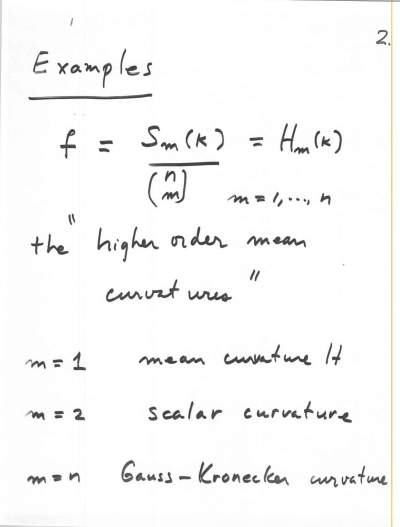 2.
Examples
f = Sm(k) / (n m) = Hm(k)
m = 1, ..., n
the "higher order mean
curvatures"
m = 1 mean curvature H
m = 2 scalar curvature
m = n Gauss-Kronecker curvature